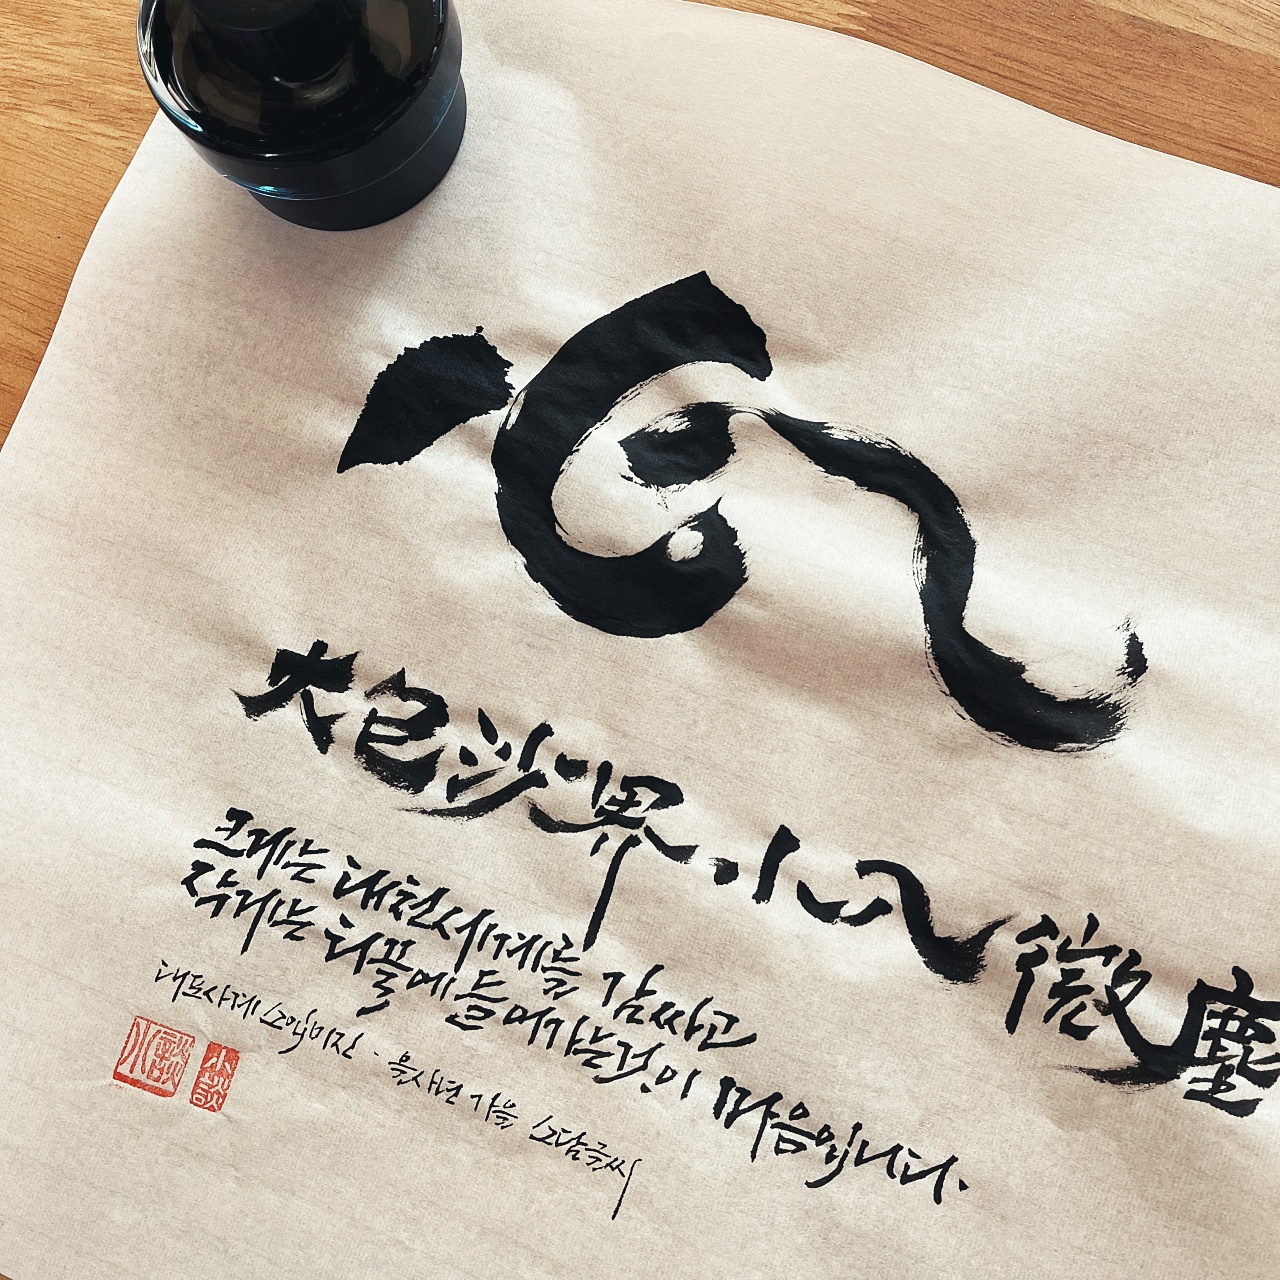 心
大包沙界 小入微塵
크게는 대천세계를 감싸고
작게는 티끌에 들어가는 것이 마음입니다.
대포사계 소입미진 · 을사년 가을 소담글씨
小談 小談